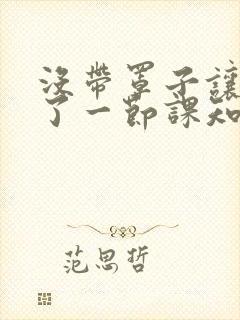 沒帶罩子讓
了一節課知
范思哲